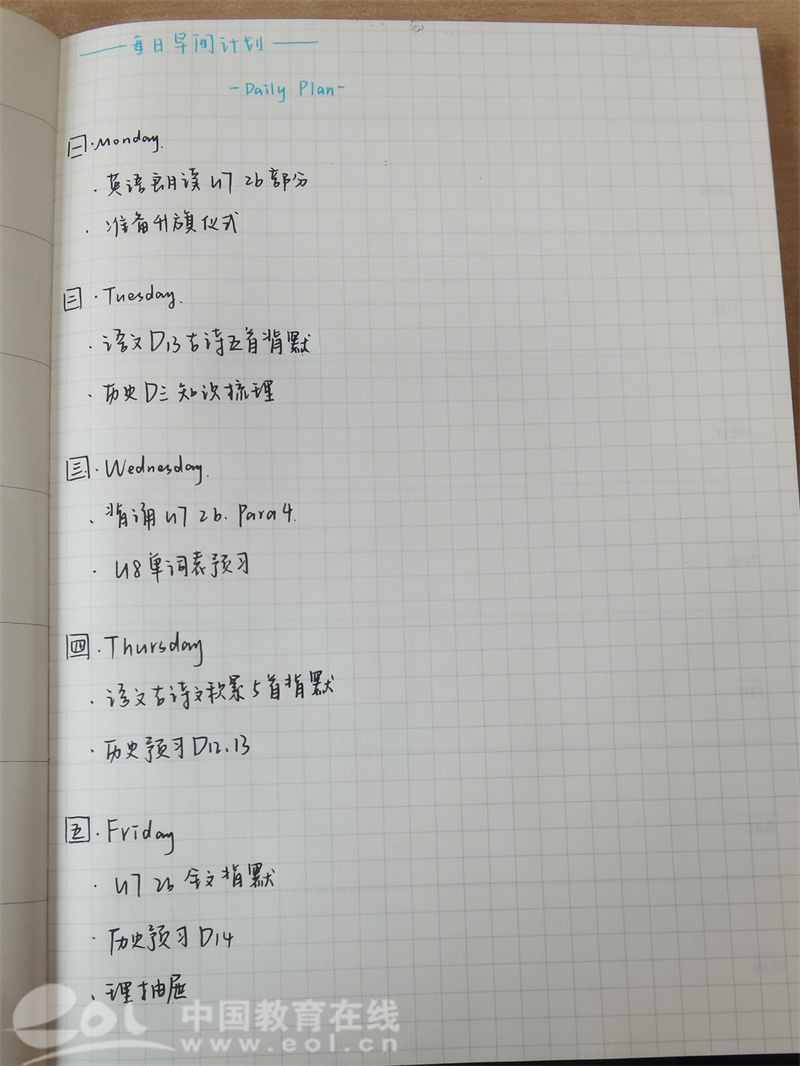 ——每日早间计划——
-Daily Plan-
一·Monday.
·英语朗读 U7 2b部分
·准备升旗仪式
二·Tuesday.
·语文D13古诗五首背默
·历史D三知识梳理
三·Wednesday.
·背诵 U7 2b. Para 4.
·U8单词表预习
四·Thursday
·语文古诗文积累5首背默
·历史预习D12.13
五·Friday
·U7 2b 全文背默
·历史预习D14
·理抽屉
eol 中国教育在线
www.eol.cn